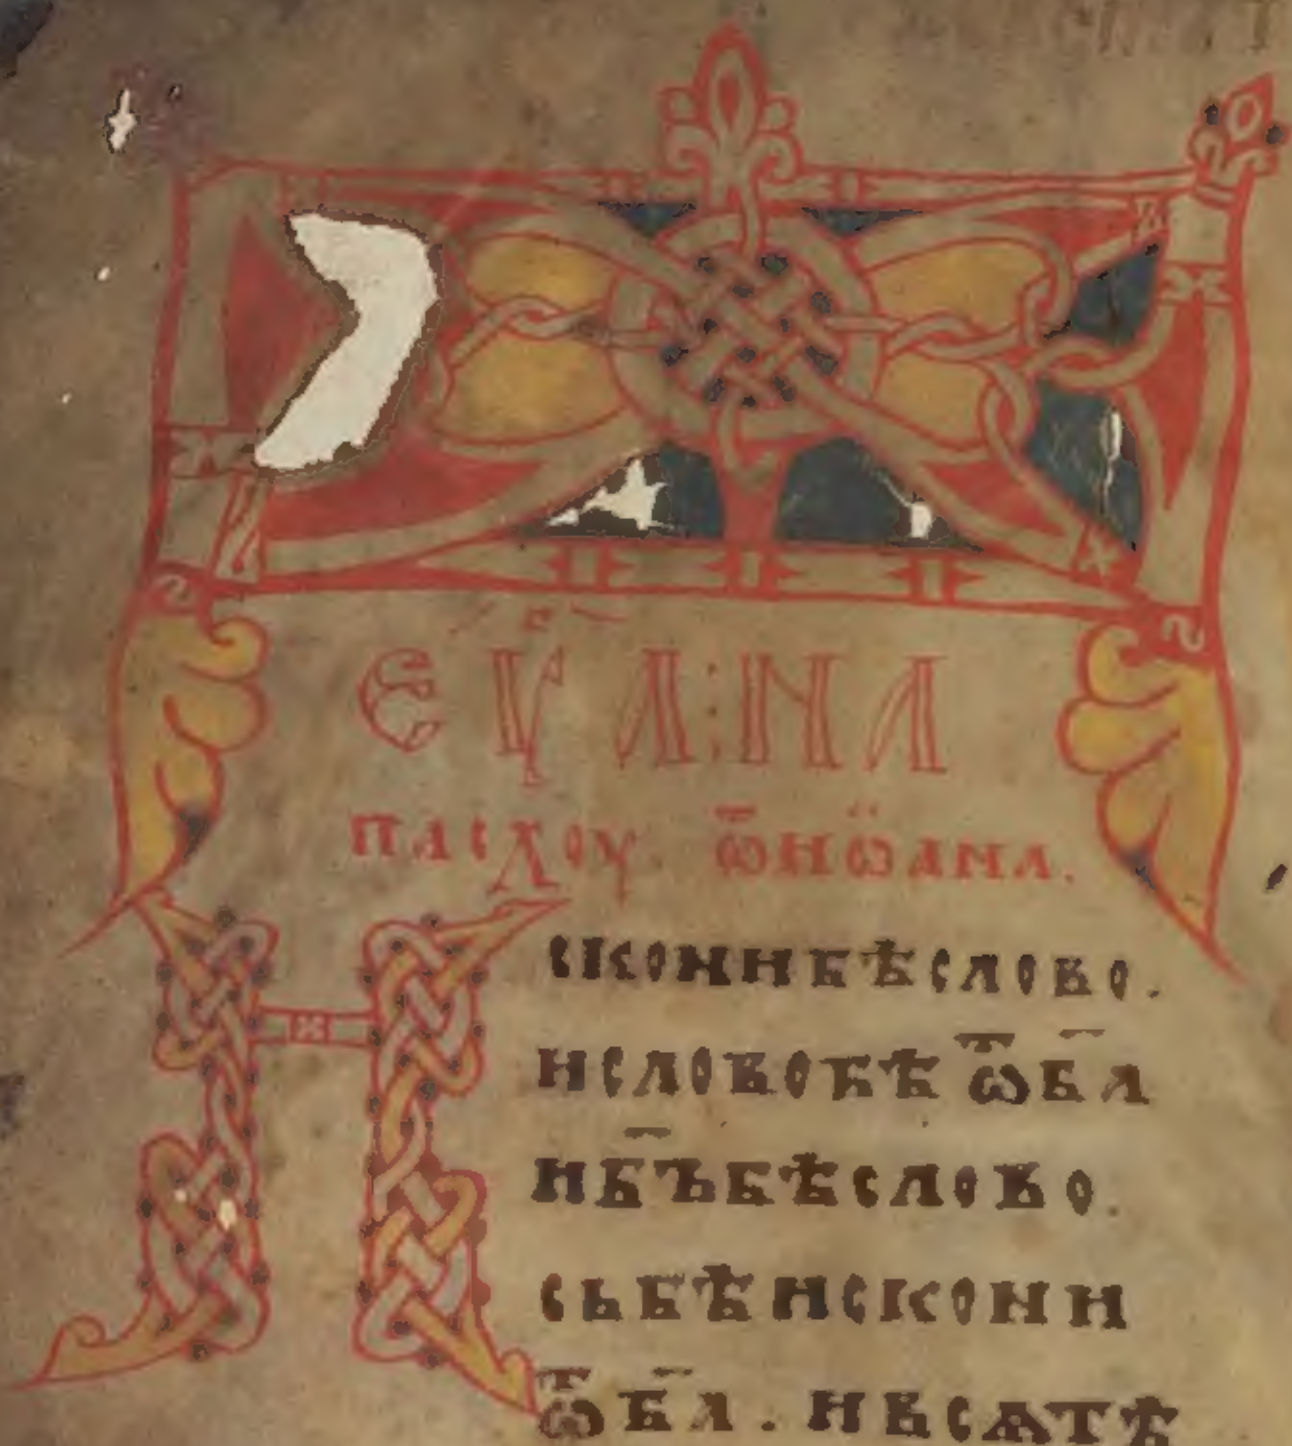 еѵⷢ҇л:на
пасхоу. ѿиѡана.
Искони бѣ слово.
и слово бѣ ѿ б҃а
и б҃ъ бѣ слово.
сь бѣ искони
ѿ б҃а. и всѧ тѣ